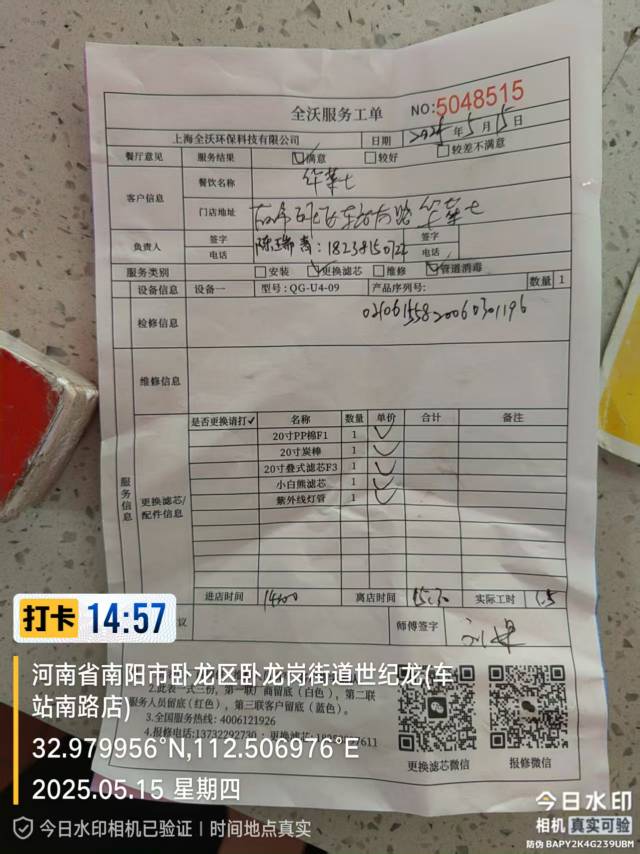 全沃服务工单
NO:5048515
上海全沃环保科技有限公司 日期 年5月15日
餐厅意见 服务结果 满意 较好 较差不满意
客户信息 餐饮名称 华莱士
门店地址 车站南路 华莱士
负责人 签字 签字
电话 电话
服务类别 安装 更换滤芯 维修 管道消毒
设备信息 设备一 型号:QG-U4-09 产品序列号: 数量 1
检修信息
维修信息
服务信息
更换滤芯/配件信息
是否更换请打✓ 名称 数量 单价 合计 备注
20寸PP棉F1 1 ✓
20寸炭棒 1 ✓
20寸叠式滤芯F3 1 ✓
小白熊滤芯 1 ✓
紫外线灯管 1 ✓
进店时间 14:00 离店时间 15:30 实际工时 1.5
议 师傅签字
2.此表一式三份,第一联厂商留底(白色),第二联
服务人员留底(红色),第三联客户留底(蓝色)。
3.全国服务热线:4006121926
4.报修电话:13732292730
更换滤芯微信 报修微信
打卡 14:57
河南省南阳市卧龙区卧龙岗街道世纪龙(车
站南路店)
32.979956°N,112.506976°E
2025.05.15 星期四
今日水印相机已验证 | 时间地点真实
今日水印
相机 真实可验
防伪 BAPY2K4G239UBM